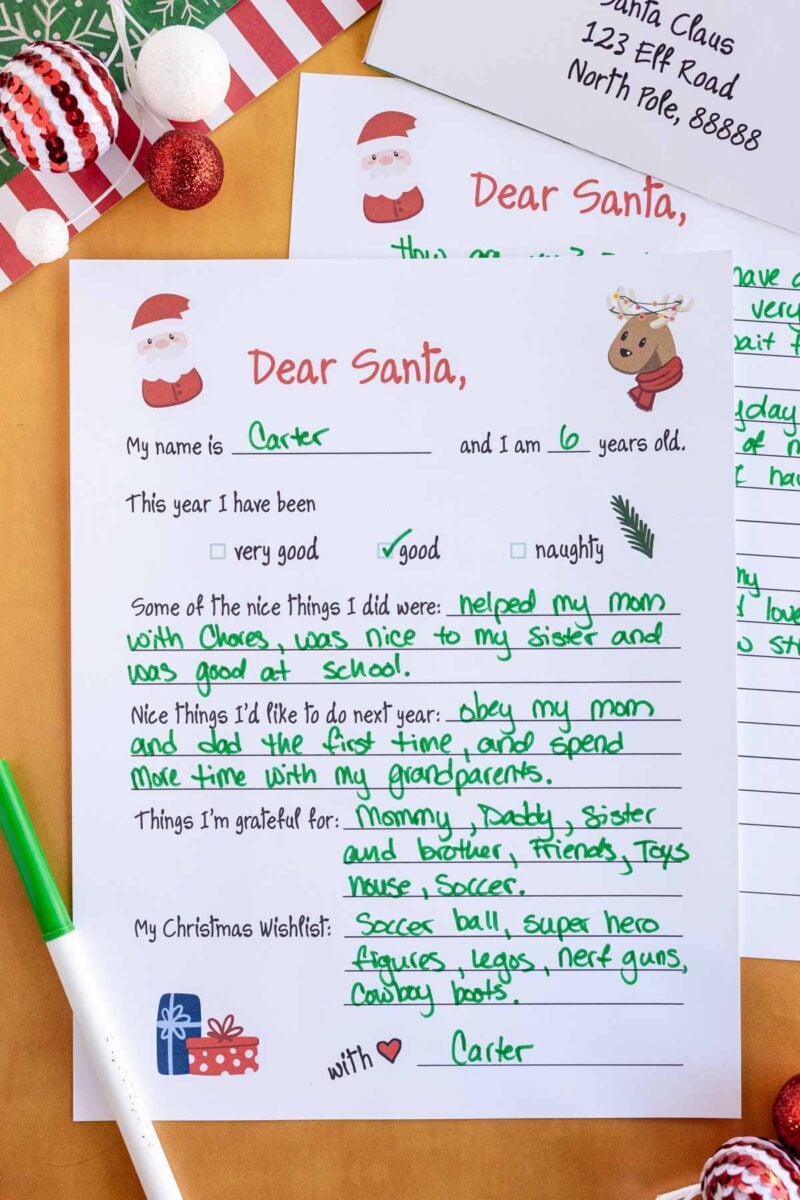 Santa Claus
123 Elf Road
North Pole, 88888
Dear Santa,
How
have
very
Dear Santa,
My name is Carter and I am 6 years old.
This year I have been
very good good naughty
Some of the nice things I did were: helped my mom
with Chores, was nice to my sister and
was good at school.
Nice things I'd like to do next year: obey my mom
and dad the first time, and spend
more time with my grandparents.
Things I'm grateful for: Mommy, Daddy, sister
and brother, Friends, Toys
house, Soccer.
My Christmas Wishlist: Soccer ball, super hero
figures, legos, nerf guns,
Cowboy boots.
with Carter